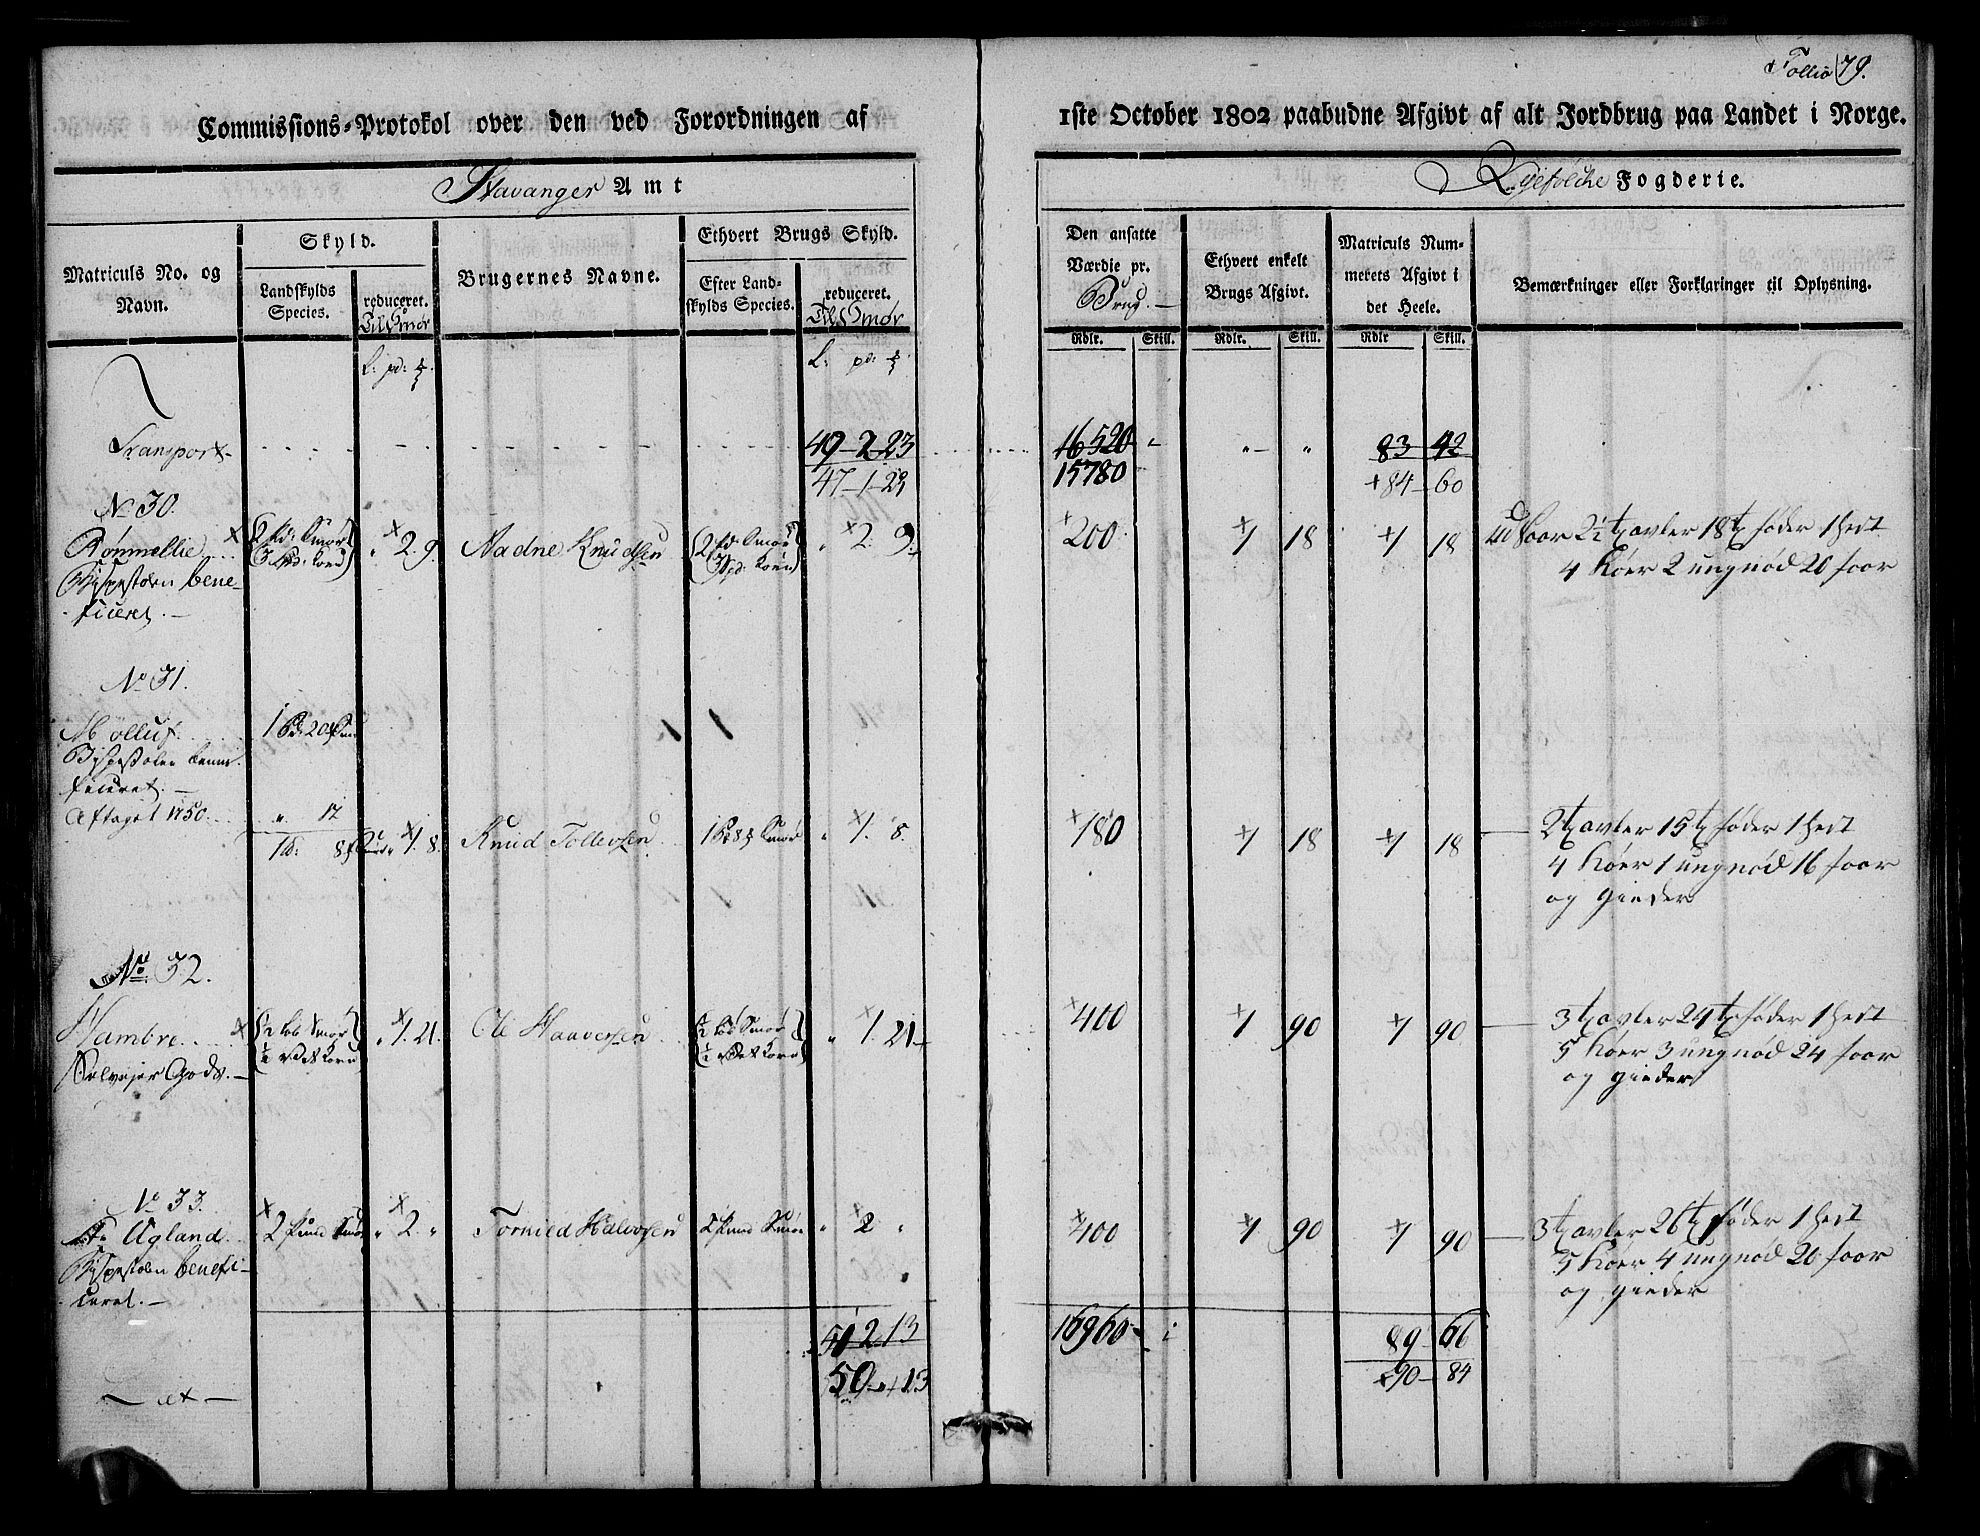 Follio 79.
Commissions-Protokol over den ved Forordningen af 1ste October 1802 paabudne Afgivt af alt Jordbrug paa Landet i Norge.
Stavanger Amt
Fogderie.
Matriculs No. og Navn.
Skyld.
Landskylds Species.
reduceret. Til Smør
Brugernes Navne.
Ethvert Brugs Skyld.
Efter Landskylds Species.
reduceret. Til Smør
Den ansatte Værdie pr. Brug.
Ethvert enkelt Brugs Afgivt.
Matriculs Nummerets Afgivt i det Heele.
Bemærkninger eller Forklaringer til Oplysning.
Rdlr. Skill. Rdlr. Skill. Rdlr Skill.
L: pd: L: pd:
Transport 49-2-23 16520 " - " 83 42
47-1-23 15780 +84-60
No 30.
Rønnellie 2 pd: Smør 3 Korn " 2. 9. Aadne Knudsen 2 pd: Smør 3 Korn " 2. 9. 200 1 18 1 18 2½ t avler 18 t føder 1 hest
Bispestolen bene- 4 Køer 2 ungnød 20 faar
ficeret.
No 31.
Mølluf 1 Pd: 20
Bispestolen bene-
ficeret.
Aftaget 1750. " 12
8 1. 8. Knud Tollevsen 1 8 Smør " 1. 8. 180 1 18 1 18 2 t avler 15 t føder 1 hest
4 Køer 1 ungnød 16 faar
og gieder
No 32.
Hambre ½ Smør ½ Korn " 1. 21. Ole Haaversen ½ Smør ½ Korn " 1. 21 400 1 90 1 90 3 t avler 24 t føder 1 hest
Selvejer Gods. 5 Køer 3 ungnød 24 faar
og gieder
No 33.
Ugland 2 Pund Smør " 2. " Tormod Halvorsen 2 Pund Smør " 2 " 400 1 90 1 90 3 t avler 26 t føder 1 hest
Bispestolen benefi- 5 Køer 4 ungnød 20 faar
ceret. og gieder
51 2. 13 16960 89 66
50 13 90 84